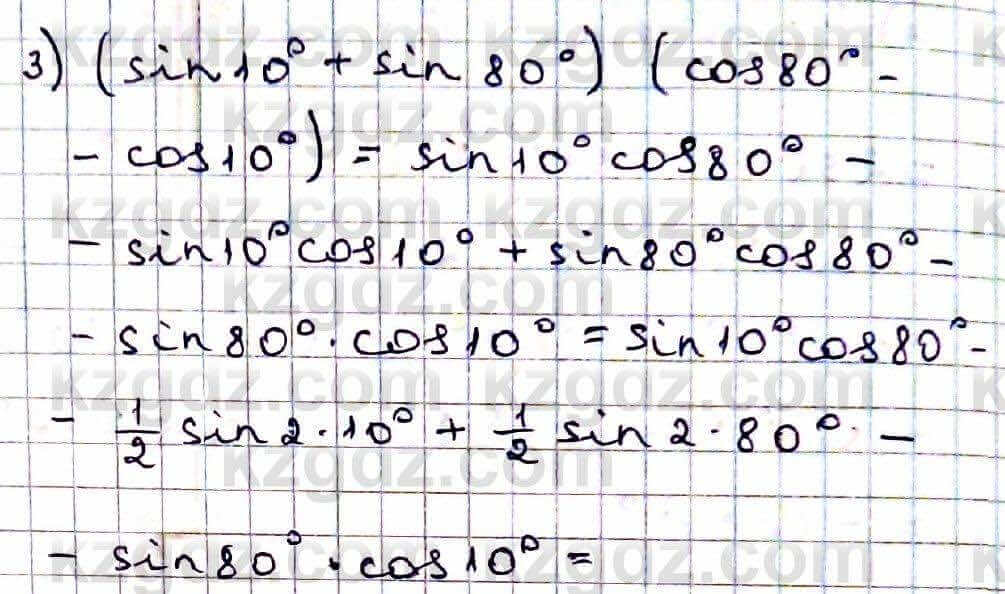 3) (sin 10° + sin 80°) (cos 80° -
- cos 10°) = sin 10° cos 80° -
- sin 10° cos 10° + sin 80° cos 80° -
- sin 80° · cos 10° = sin 10° cos 80° -
- 1/2 sin 2 · 10° + 1/2 sin 2 · 80° -
- sin 80° · cos 10° =
kzgdz.com